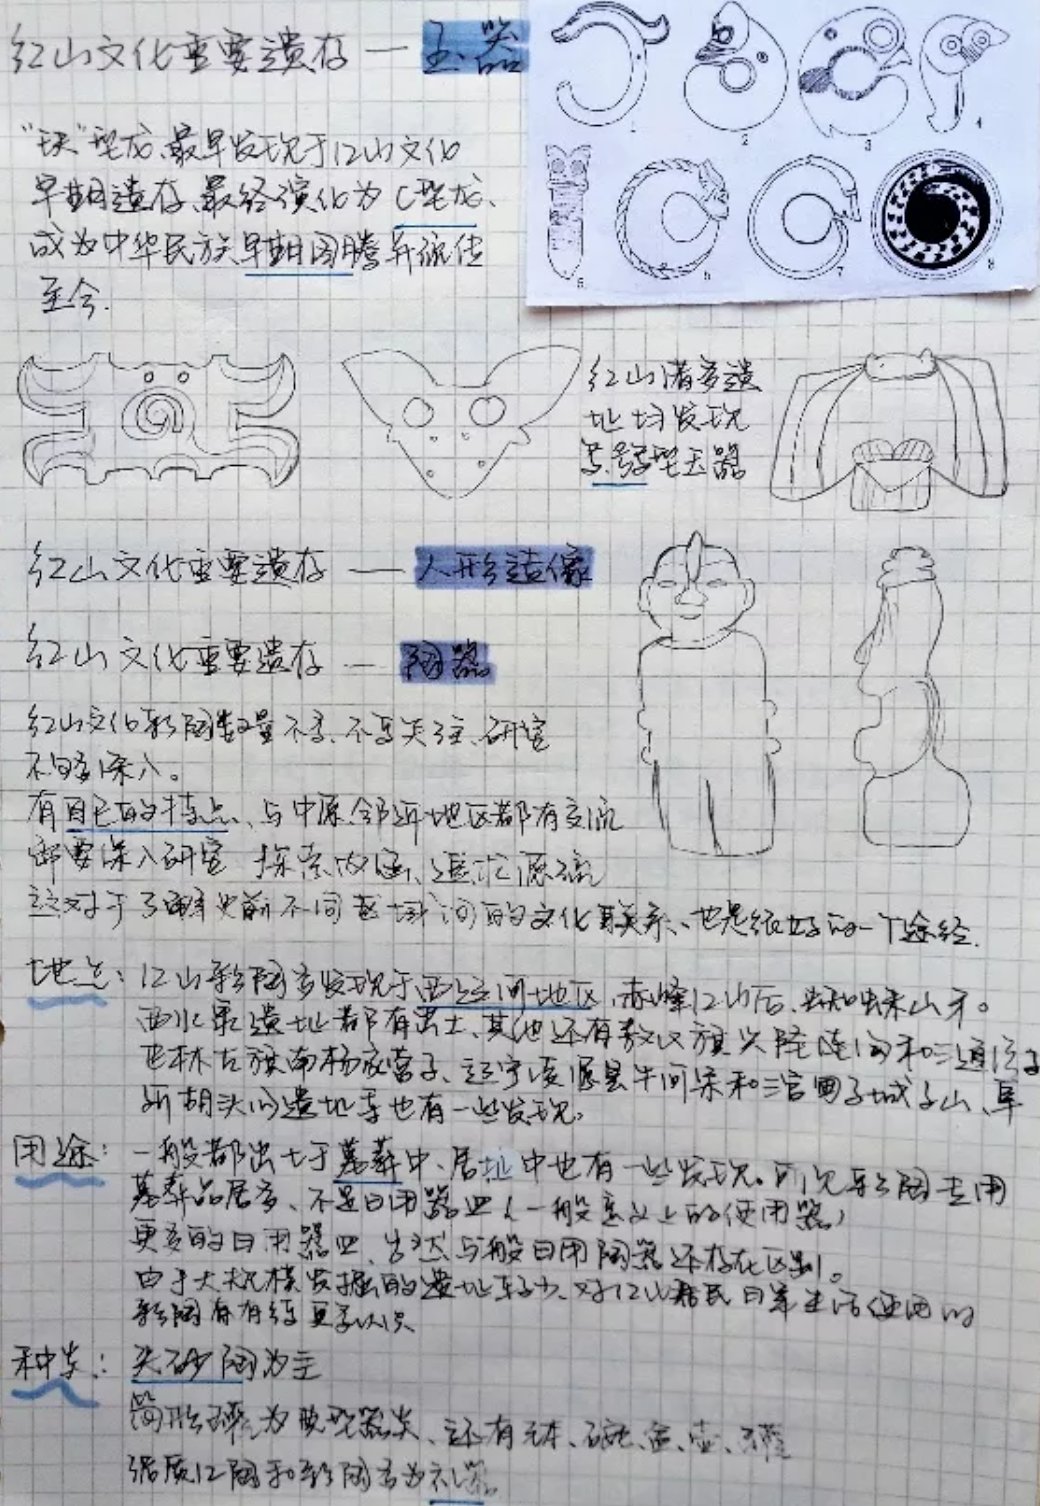 红山文化重要遗存 — 玉器
"玦"型龙,最早发现于红山文化
早期遗存、最终演化为C型龙、
成为中华民族早期图腾并流传
至今.
1
2
3
4
5
6
7
8
红山诸多遗
址均发现
型玉器
红山文化重要遗存 — 人形造像
红山文化重要遗存 — 陶器
红山文化彩陶数量不多、不受关注、研究
不够深入。
有自己的特点、与中原邻近地区都有交流
需要深入研究 探索内涵、追忆源流
这对于了解史前不同区域间的文化联系、也是很好的一个途经.
地点: 红山彩陶多发现于西辽河地区,赤峰红山后、蜘蛛山
西水泉遗址都有出土、其他还有敖汉旗兴隆洼和三道湾子
巴林右旗南杨家营子、辽宁凌源县牛河梁和三官甸子城子山、阜
新胡头沟遗址等也有一些发现。
用途: 一般都出土于墓葬中、居址中也有一些发现。可见彩陶专用
墓葬品居多、不是日用器皿(一般意义上的使用器)
更多的日用器皿、当然与一般日用陶器还存在区别。
由于大规模发掘的遗址较少、对红山居民日常生活使用的
彩陶有待更多认识
种类: 夹砂陶为主
筒形罐为典型器类、还有钵、碗、盆、壶、罐
泥质红陶和彩陶多为礼器